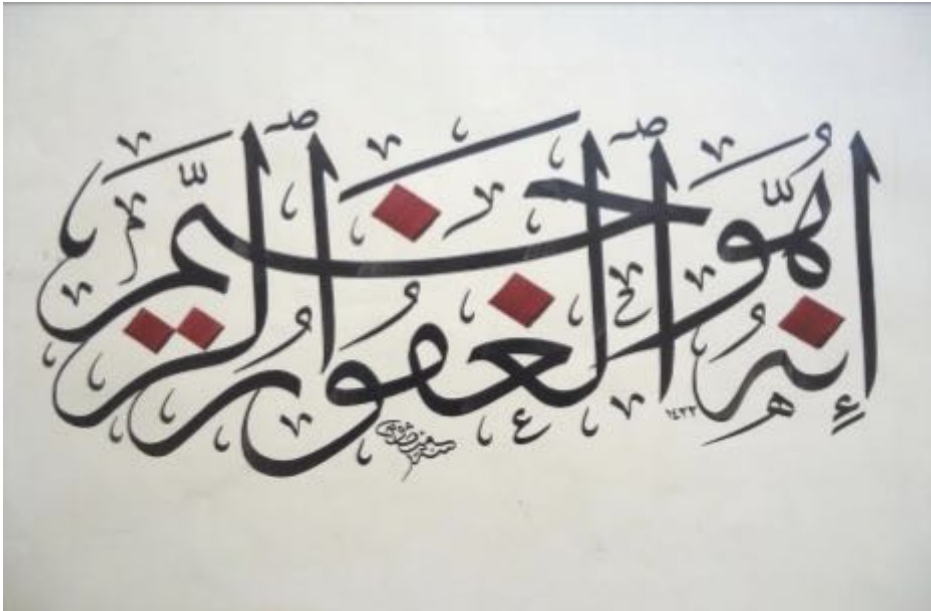 إِنَّهُ هُوَ الْغَفُورُ الرَّحِيمُ
١٤٣٣